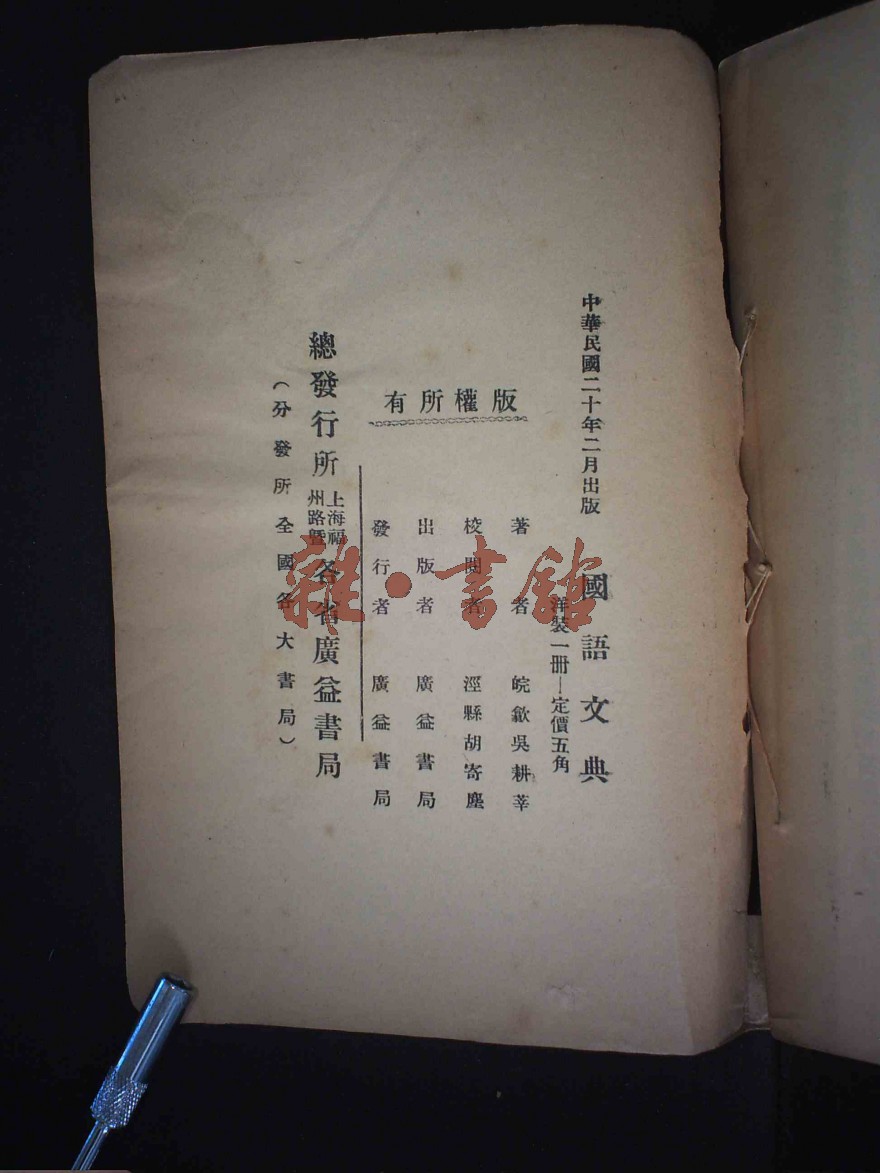 中華民國二十年二月出版
國語文典
洋裝一冊—定價五角
版權所有
著者 皖歙吳耕莘
校閱者 涇縣胡寄塵
出版者 廣益書局
發行者 廣益書局
總發行所 上海福州路暨各省廣益書局
(分發所全國各大書局)
雜·書館